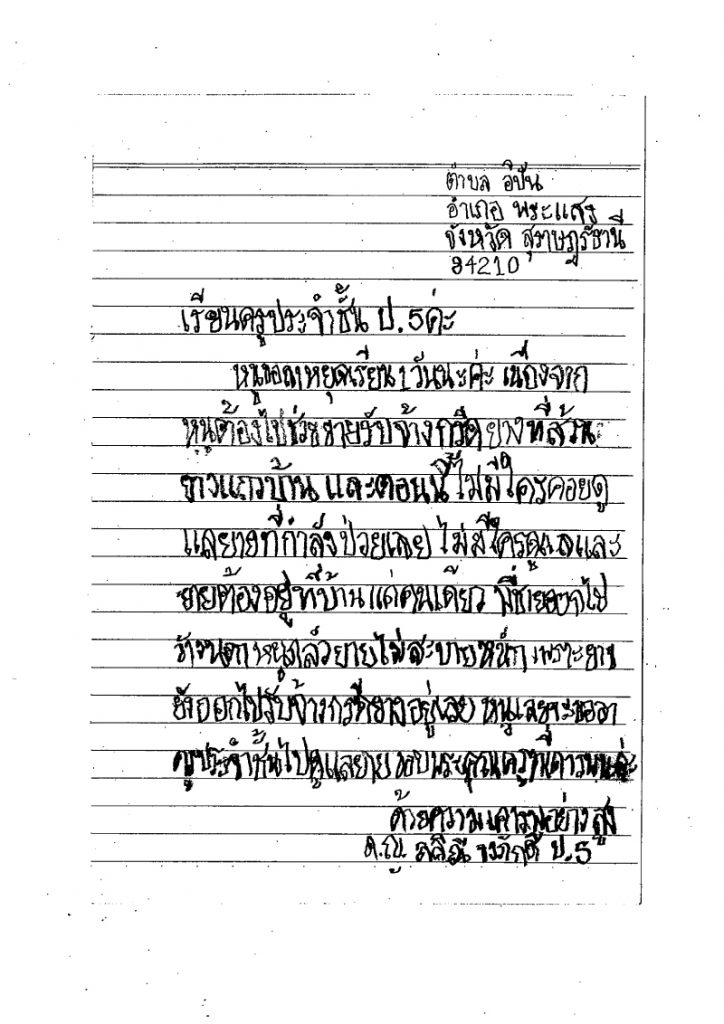 ตำบล อิปัน
อำเภอ พระแสง
จังหวัด สุราษฎร์ธานี
84210
เรียนครูประจำชั้น ป.5ค่ะ
หนูขอลาหยุดเรียน 1 วันนะค่ะ เนื่องจาก
หนูต้องไปช่วยยายรับจ้างกรีดยางที่สวน
แถวบ้าน และตอนนี้ไม่มีใครคอยดู
แลยายที่กำลังป่วยเลย ไม่มีใครดูแลและ
ยายต้องอยู่ที่บ้านแต่คนเดียว พี่ชายออกไป
หนูกลัวยายไม่สะบายหนัก เพราะยาย
ยังออกไปรับจ้างกรีดยางอยู่เลย หนูเลยจะขอลา
ครูประจำชั้นไปดูแลยาย ขอบพระคุณครู
ด้วยความเคารพอย่างสูง
ด.ญ. ป.5